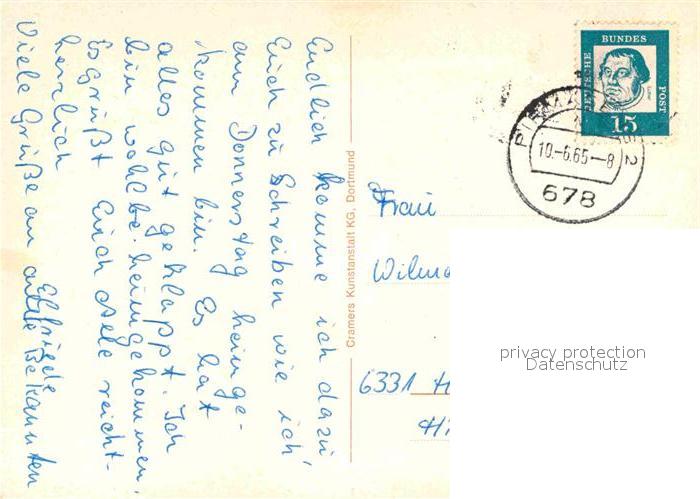 Endlich komme ich dazu
Euch zu Schreiben wie ich,
am Donnerstag heimge-
kommen bin. Es hat
alles gut geklappt. Ich
bin wohlbe-heimgekommen.
Es grüßt Euch alle reicht-
herzlich
Elfriede
Viele Grüße an alle Bekannten
Cramers Kunstanstalt KG, Dortmund
DEUTSCHE
BUNDES
POST
15
10.-6.65-8
2
678
Frau
6331
privacy protection
Datenschutz